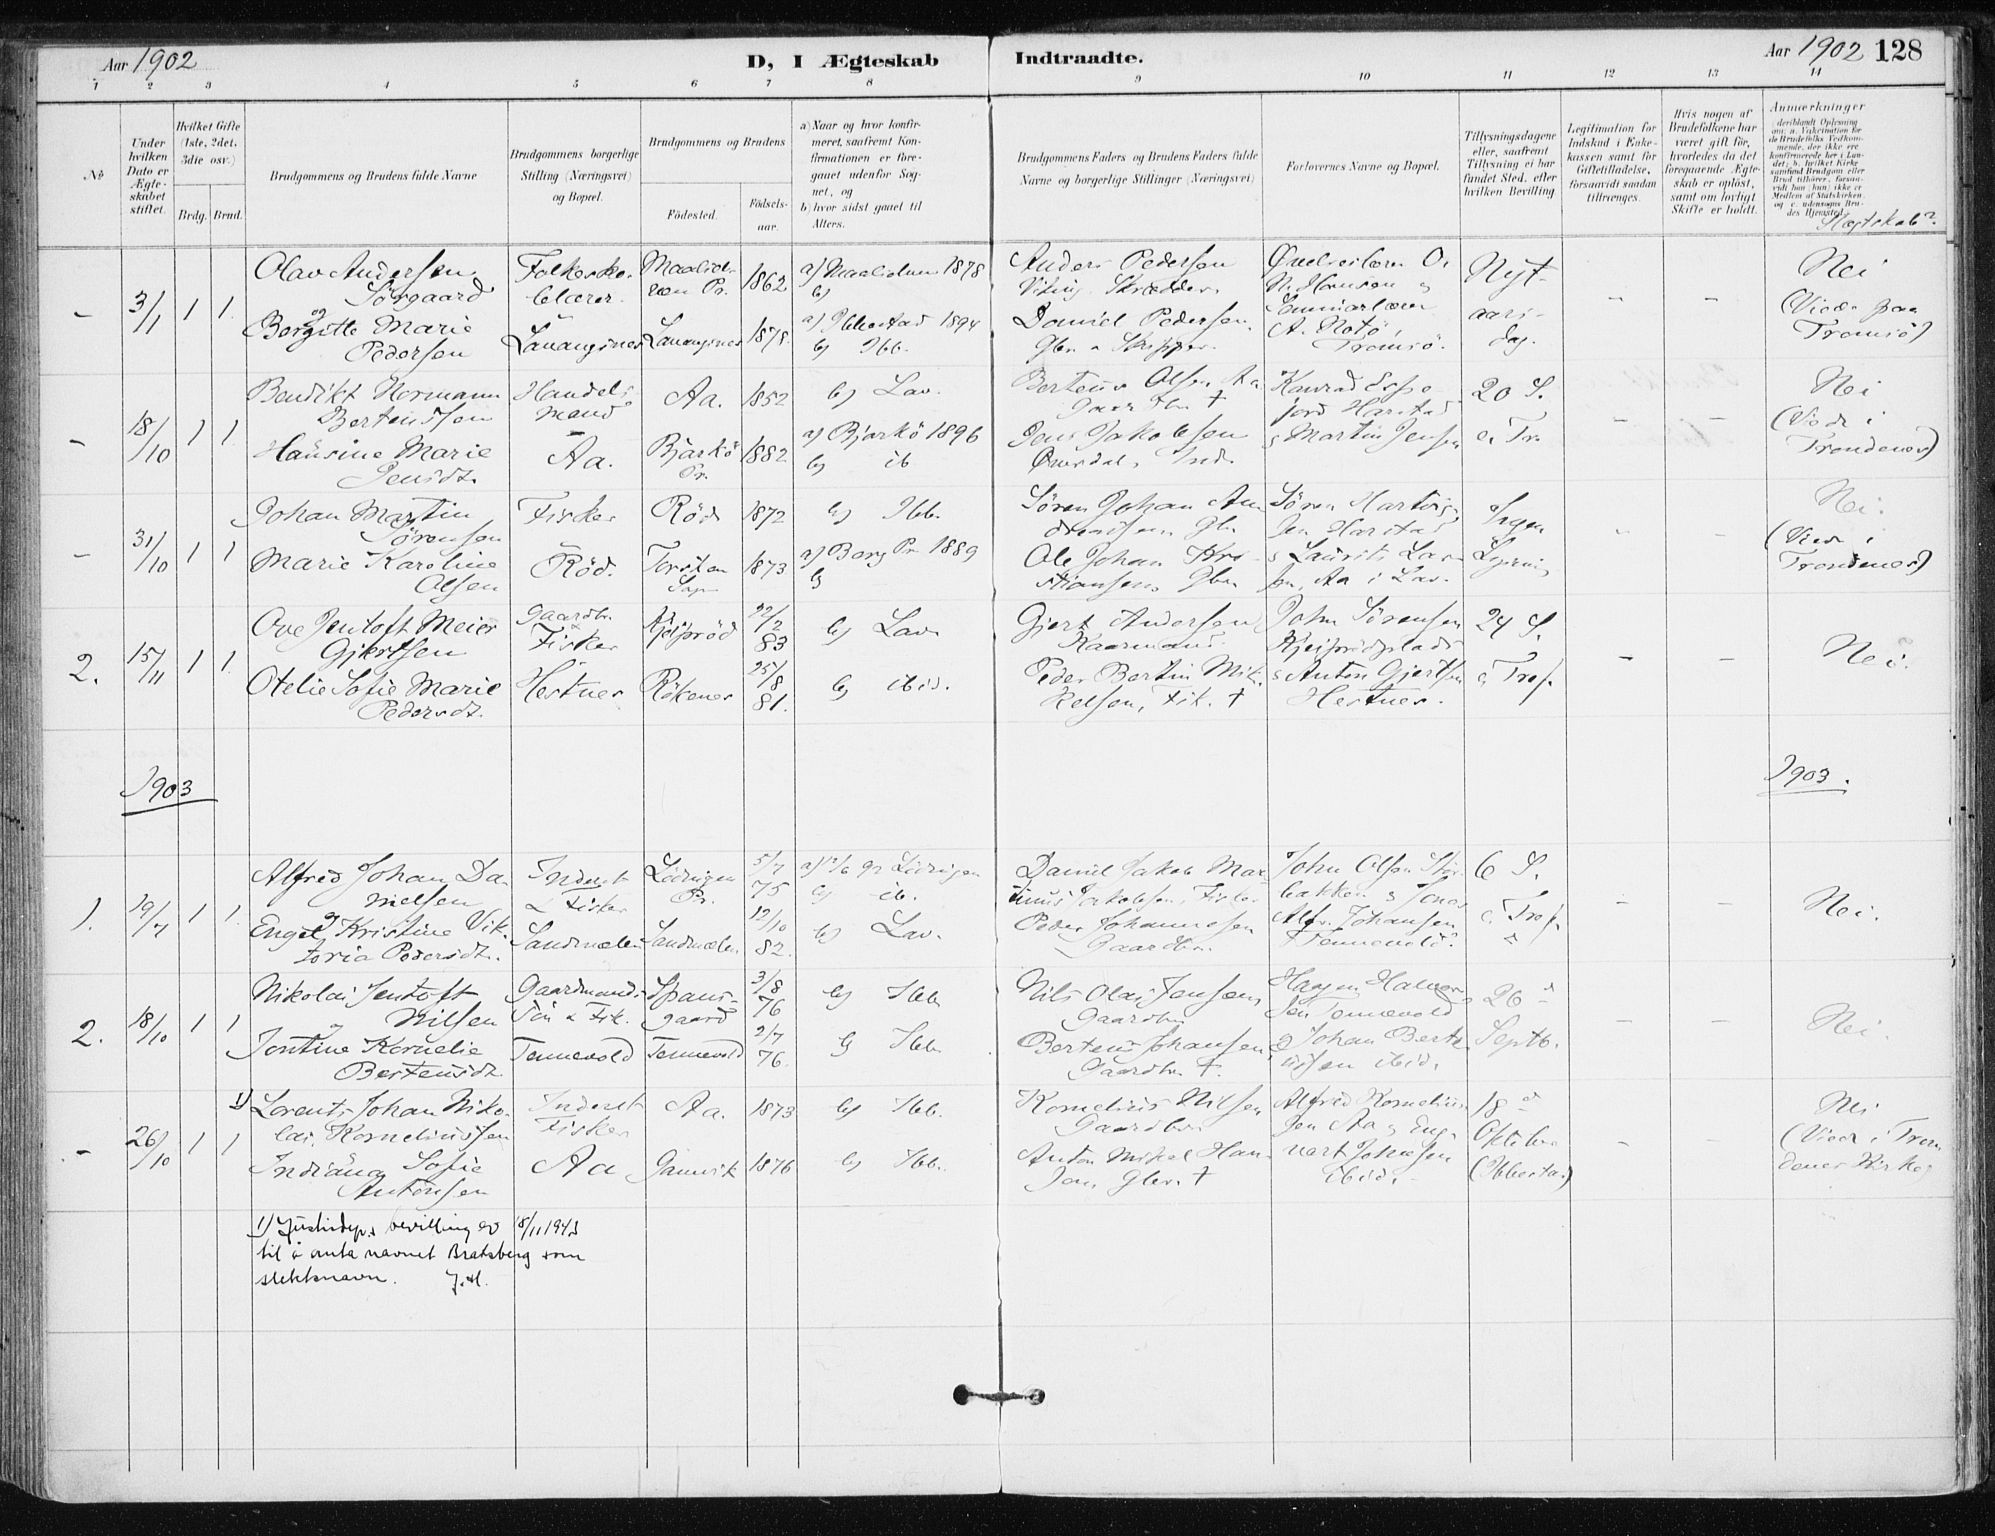 Aar 1902
D, I Ægteskab Indtraadte.
Aar 1902 128
1 2 3 4 5 6 7 8 9 10 11 12 13 14
No
Under hvilken Dato er Ægteskabet stiftet.
Hvilket Gifte (1ste, 2det, 3die osv.)
Brdg. Brud.
Brudgommens og Brudens fulde Navne
Brudgommens borgerlige Stilling (Næringsvei) og Bopæl.
Brudgommens og Brudens
Födested.
Födselsaar.
a) Naar og hvor konfirmeret, saafremt Konfirmationen er foregaaet udenfor Sognet, og
b) hvor sidst gaaet til Alters.
Brudgommens Faders og Brudens Faders fulde Navne og borgerlige Stillinger (Næringsvei)
Forlovernes Navne og Bopæl.
Tillysningsdagene eller, saafremt Tillysning ei har fundet Sted, efter hvilken Bevilling.
Legitimation for Indskud i Enkekassen samt for Giftetilladelse, forsaavidt saadan tiltrænges.
Hvis nogen af Brudefolkene har været gift för, hvorledes da det foregaaende Ægteskab er oplöst, samt om lovligt Skifte er holdt.
Anmærkninger
Slægtskab?
- 3/1 1 1
Olav Andersen
Sörgaard
og
Bergitte Marie
Pedersen
Folkesko-
lelærer.
Lavangsnes
Lavangsnes
1862
1878.
a) Maalselven 1878
b)
a) Ibbestad 1894
b) Ibb.
Anders Pedersen
Skrædder.
Daniel Pedersen
Gbr. & Skipper.
N. Hansen
A.
Tromsö.
Nyt-
aars-
dag.
- -
Nei
(Viede paa
Tromsö)
- 18/10 1 1
Bendikt Normann
Bertensen
Hansine Marie
Jensdt.
Handels
mand
Aa.
Aa.
Bjarkö
Pr.
1852
1882
b) Lav.
a) Bjarkö 1896
b) ib
Berteus Olsen Aa
Gaardbr. †
Jens Jakobsen
Ind.
Konrad Espe-
jord Harstad
& Martin Jensen
20 S.
e. Tr.
- -
Nei
(Viede i
Trondenes)
- 31/10 1 1
Johan Martin
Sörensen
Marie Karoline
Olsen
Fisker
Röd.
Röd
Torsken
Sogn
1872
1873
b) Ibb.
a) Berg Pr 1889
b)
Sören Johan An-
dreassen Gbr
Ole Johan Kri-
stiansen, Gbr
Sören Hartvig-
sen Harstad
& Laurits Lar-
sen, Aa i Lav.
Ingen
Lysning
- -
Nei.
(Viede i
Trondenes)
2. 15/11 1 1
Ove Jentoft Meier
Gjertsen
Otelie Sofie Marie
Pedersdt.
Gaardbr.
& Fisker
Hestnes
Kjeipröd
Rökenes
22/2
83
25/8
81.
b) Lav.
b) ibid.
Gjert Andersen
Kaarmand
Peder Bertin Mik-
kelsen, Fik. †
John Sörensen
Kjeiprödplads
& Anton Gjertsen
Hestnes.
24 S.
e. Tref.
- -
Nei.
1903
1903.
1. 19/7 1 1
Alfred Johan Da-
nielsen
og
Engel Kristine Vik-
toria Pedersdt.
Inderst
& Fisker
Sandmælen
Lödingen
Pr.
Sandmælen
5/7
75
12/10
82.
b) ib.
b) Lav.
Daniel Jakob Mar-
tinus Jakobsen, Fisker
Peder Johannesen
Gaardbr.
John Olsen Stor-
bakken & Jonas
Alfr. Johansen
Tennevold.
6 S.
e. Tref.
- -
Nei.
2. 18/10 1 1
Nikolai Jentoft
Nilsen
og
Jentine Kornelie
Bertensdt.
Gaardmands
Sön & Fik.
Tennevold
Spans-
gaard
Tennevold
3/8
76
2/7
76.
b) Ibb
b) Ibb
Nils Olai Jensen,
Gaardbr
Berteus Johansen
Gaardbr †.
Hagen Halvor-
sen Tennevold
& Johan Berte-
ussen ibid.
26
Septb.
- -
Nei.
- 26/10 1 1
1) Lorents Johan Niko-
lai Korneliussen
Indiana Sofie
Antonsen
Inderst
Fisker
Aa
Aa.
Gamvik
1873
1876
b) Ibb.
b) Ibb.
Kornelius Nilsen
Gaardbr.
Anton Mikal Han-
sen, Gbr. †
Alfred Kornelius-
sen Aa & Eng-
vart Johnsen
ibid.
18
Oktober
(Ibbestad)
- -
Nei
(Viede i Tron
denes Kirke)
1) Justisdep.s bevilling av 18/11 1943
til å anta navnet Bratsberg som
slektsnavn. J.H.